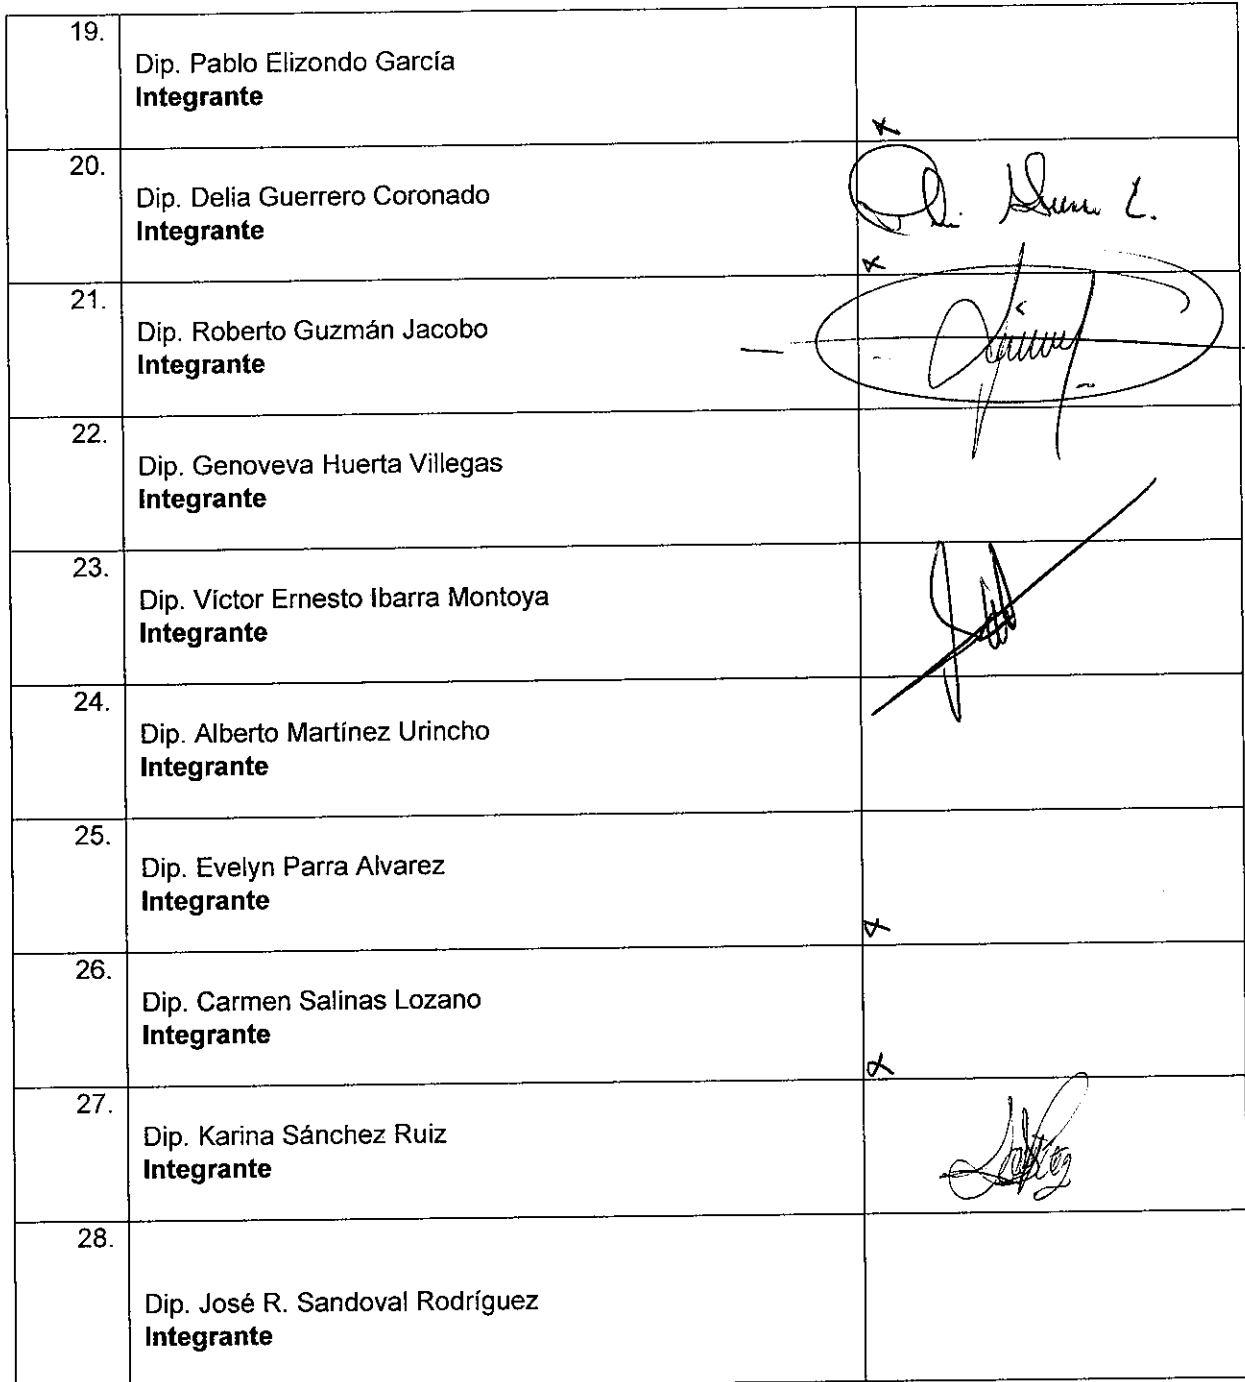 19.
Dip. Pablo Elizondo García
Integrante
20.
Dip. Delia Guerrero Coronado
Integrante
21.
Dip. Roberto Guzmán Jacobo
Integrante
22.
Dip. Genoveva Huerta Villegas
Integrante
23.
Dip. Víctor Ernesto Ibarra Montoya
Integrante
24.
Dip. Alberto Martínez Urincho
Integrante
25.
Dip. Evelyn Parra Alvarez
Integrante
26.
Dip. Carmen Salinas Lozano
Integrante
27.
Dip. Karina Sánchez Ruiz
Integrante
28.
Dip. José R. Sandoval Rodríguez
Integrante